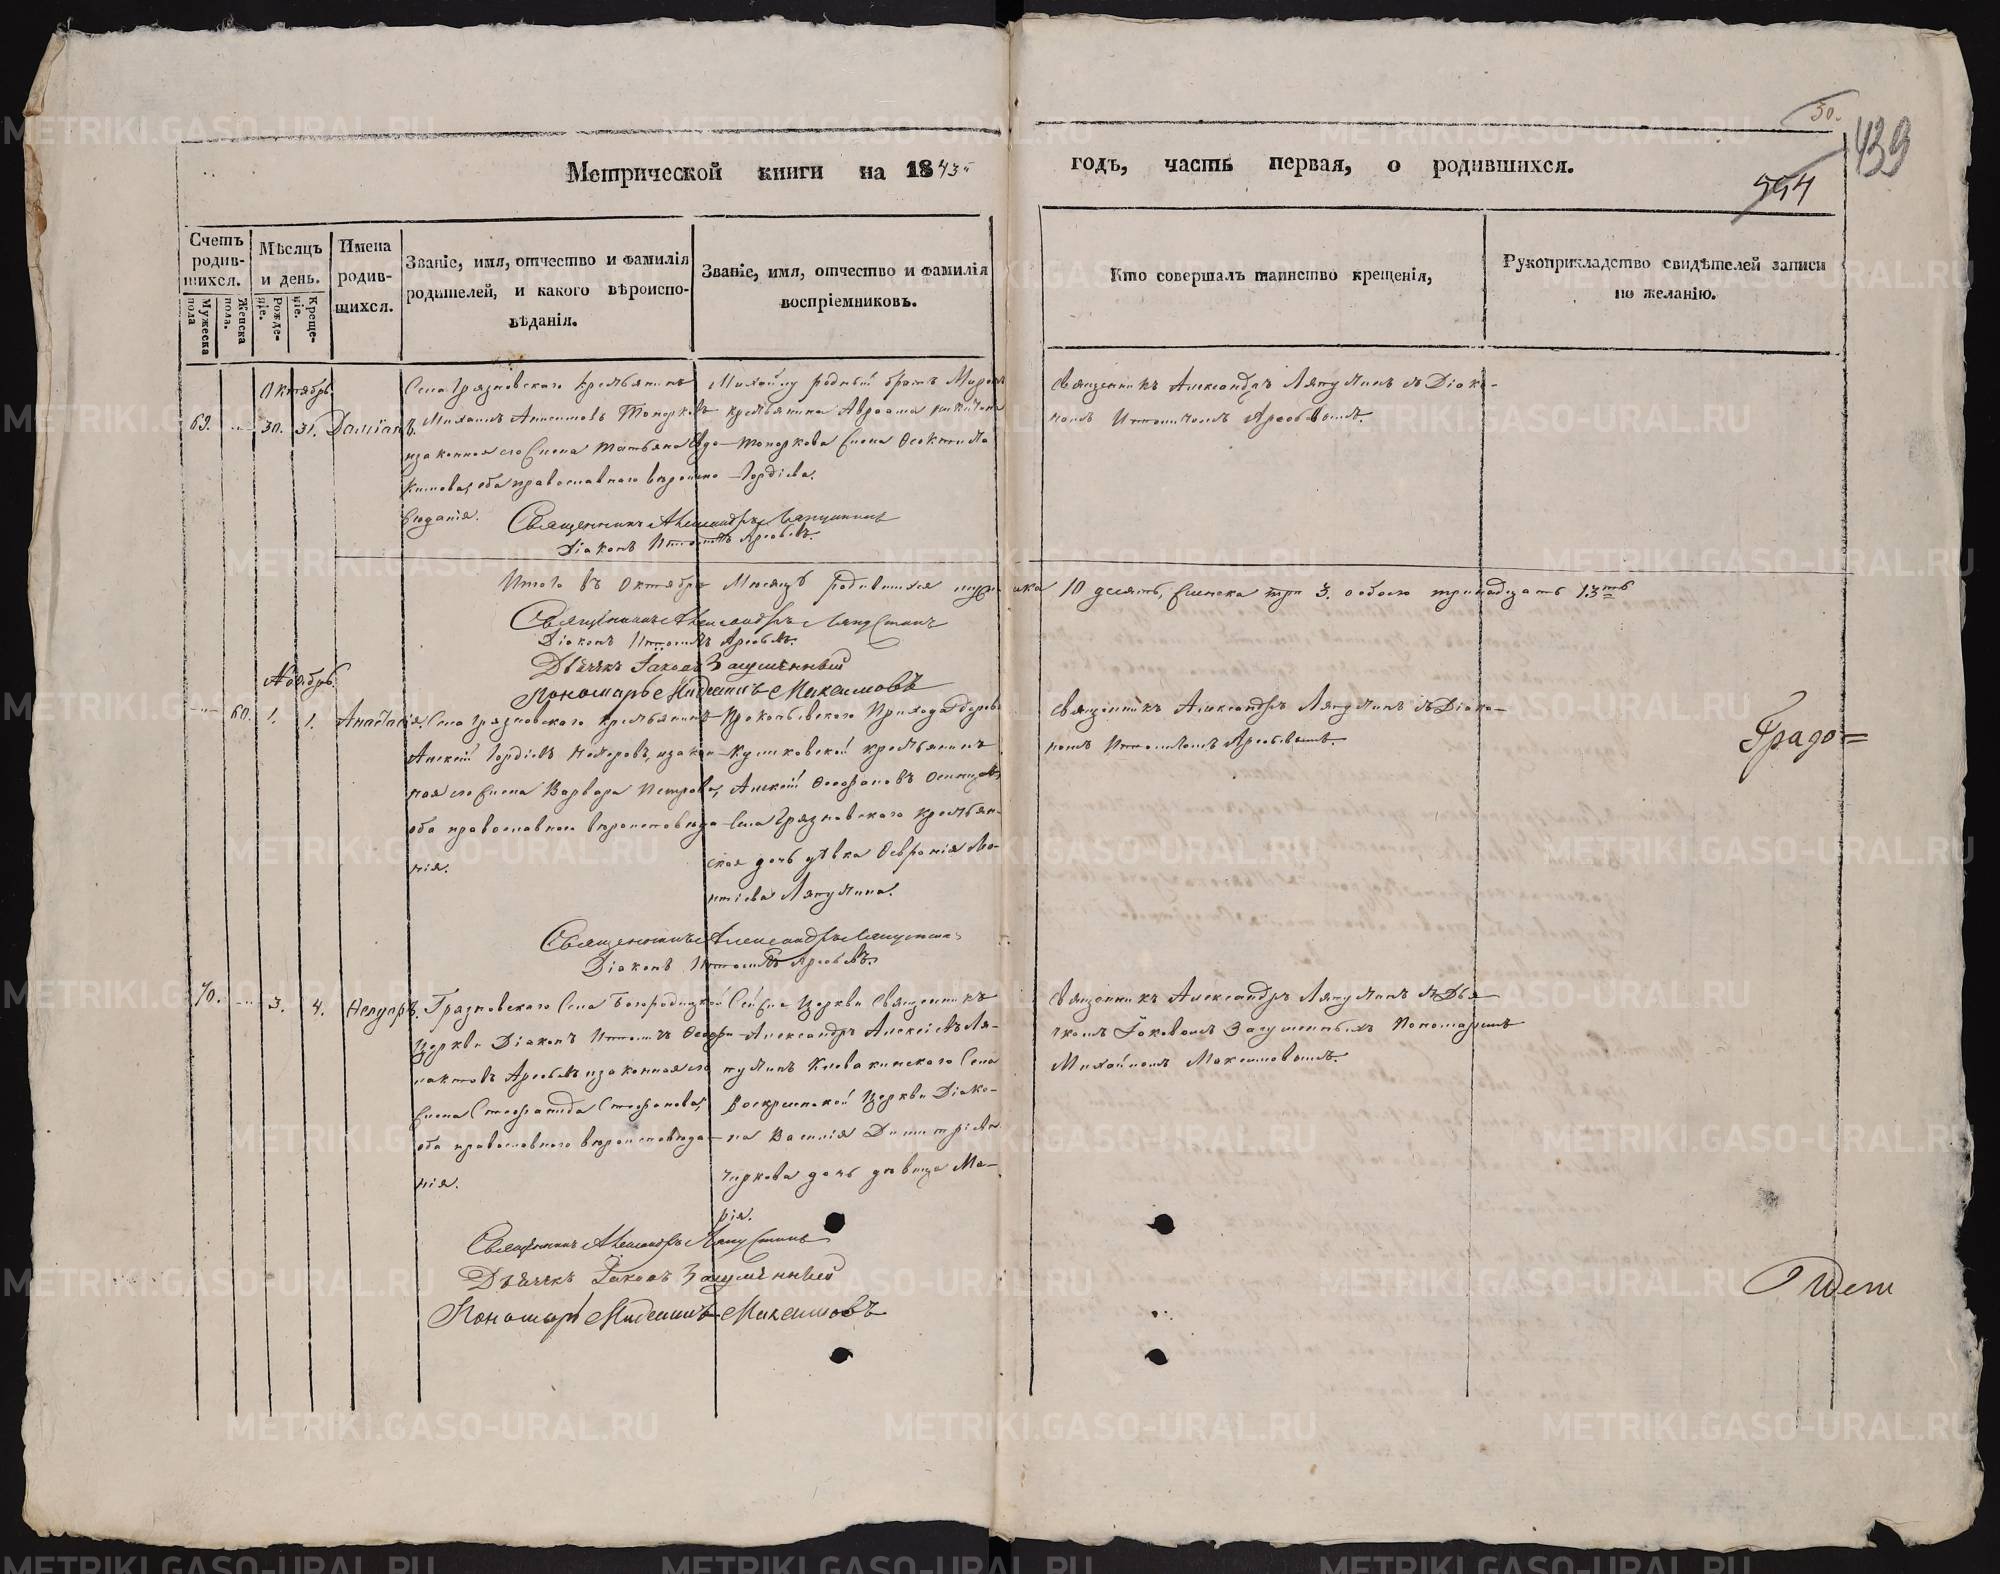 30.
439
594
Метрической книги на 1843й годъ, часть первая, о родившихся.
Счетъ родив- шихся.
Мужеска пола
Женска пола.
Мѣсяцъ и день.
Рожде- ніе.
Креще- ніе.
Имена родив- шихся.
Званіе, имя, отчество и фамилія родителей, и какого вѣроиспо- вѣданія.
Званіе, имя, отчество и фамилія воспріемниковъ.
Кто совершалъ таинство крещенія,
Рукоприкладство свидѣтелей записи по желанію.
Октябрь
69. 30. 31. Даміанъ.
Села Грязновскаго крестьянинъ
Михаилъ Топорковъ
и законная его жена Татьяна Евдо-
кимова, оба православнаго вѣроиспо-
вѣданія.
Михаилу родный братъ
крестьянина
Топоркова жена
Гордіева.
Священникъ Александръ Ляпустинъ съ Діако-
номъ Арефьевымъ.
Священникъ Александръ Ляпустинъ
Діаконъ Арефьевъ.
Итого въ Октябрѣ Мѣсяцѣ родившихся мужеска 10 десять, женска три 3. обоего тринадцать 13ть
Священникъ Александръ Ляпустинъ
Діаконъ Арефьевъ.
Дьячекъ Іаковъ
Пономарь Михаилъ Максимовъ
Ноябрь.
60. 1. 1. Анастасія.
Села Грязновскаго крестьянинъ
Алексѣй Гордіевъ и закон-
ная его жена Варвара Петрова,
оба православнаго вѣроисповѣда-
нія.
Прокопьевскаго Прихода дерев.
крестьянинъ
Алексѣй
Села Грязновскаго крестьян-
ская дочь дѣвка Леон-
тіева Ляпустина.
Священникъ Александръ Ляпустинъ съ Діако-
номъ Арефьевымъ.
Градо=
Священникъ Александръ Ляпустинъ
Діаконъ Арефьевъ.
70. 3. 4.
Грязновскаго Села Богородицкой
Церкви Діаконъ
Арефьевъ и законная его
жена Стефанида Стефанова,
оба православнаго вѣроисповѣда-
нія.
Сей же Церкви Священникъ
Александръ Алексіевъ Ля-
пустинъ Села
Воскресенской Церкви Діако-
на Василія Димитріева
дочь дѣвица Ма-
рія.
Священникъ Александръ Ляпустинъ съ Дья-
чкомъ Іаковомъ Пономаремъ
Михаиломъ Максимовымъ.
Священникъ Александръ Ляпустинъ
Дьячекъ Іаковъ
Пономарь Михаилъ Максимовъ
METRIKI.GASO-URAL.RU